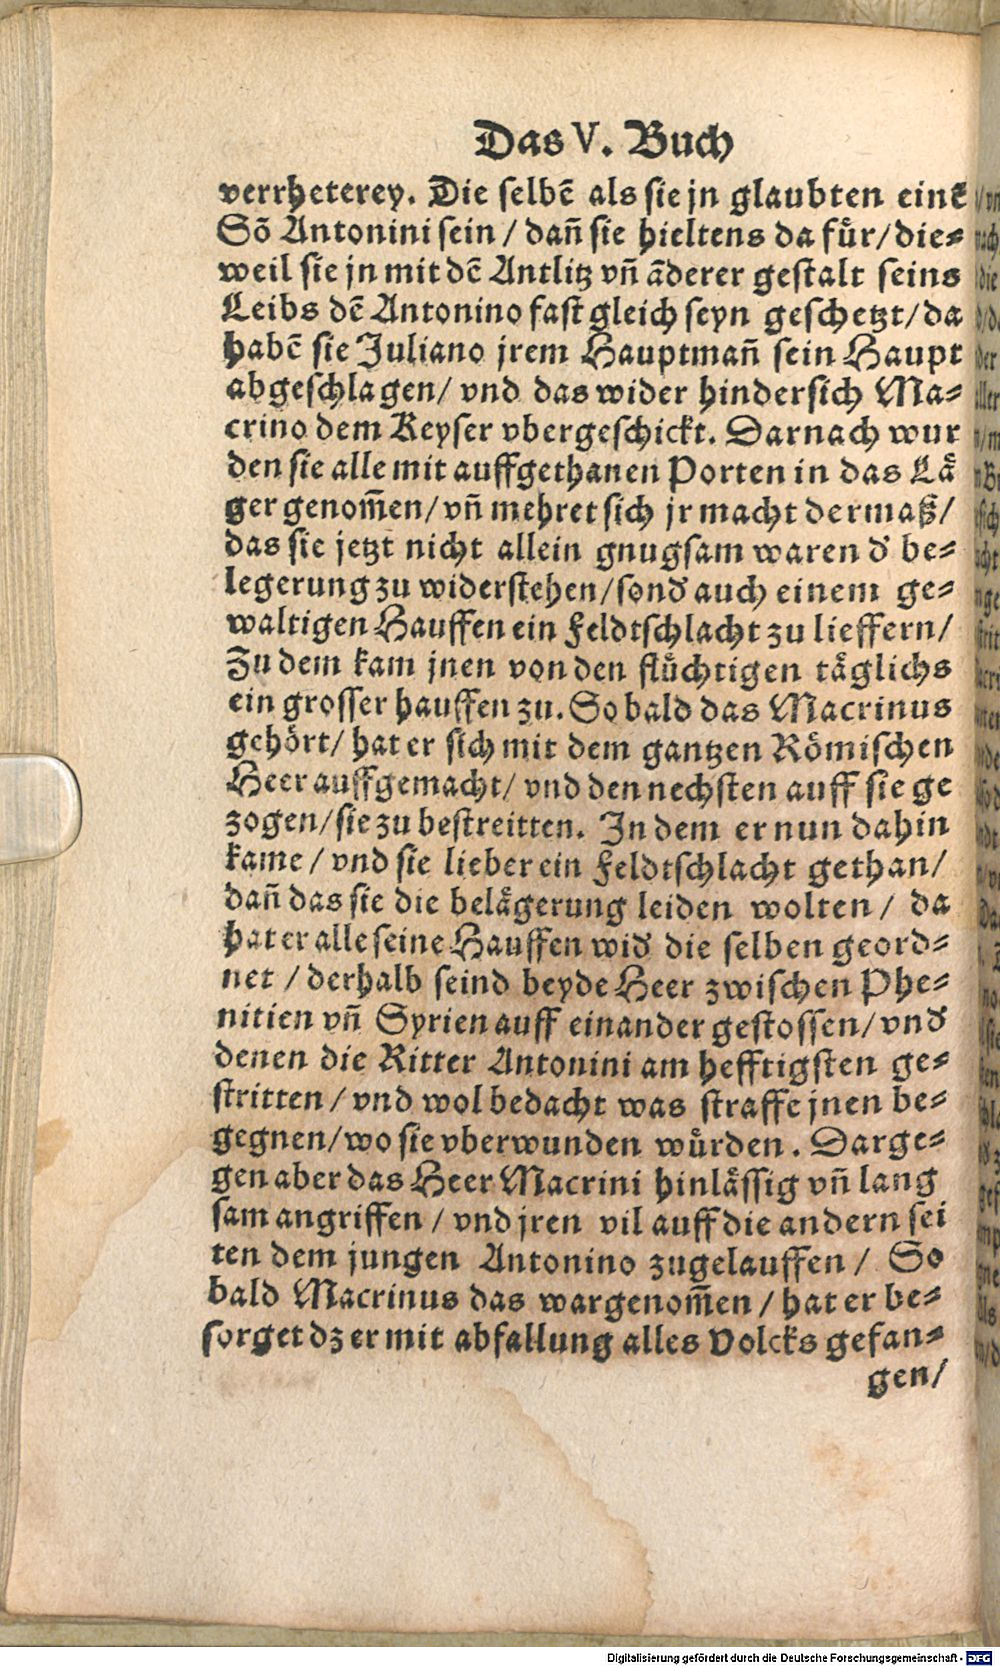 Das V. Buch
verrheterey. Die selbē als sie jn glaubten einē
Sō Antonini sein / dañ sie hieltens da für/ die=
weil sie jn mit dē Antlitz vñ āderer gestalt seins
Leibs dē Antonino fast gleich seyn geschetzt/ da
habē sie Juliano jrem Hauptmañ sein Haupt
abgeschlagen/ vnd das wider hindersich Ma=
crino dem Keyser vbergeschickt. Darnach wur
den sie alle mit auffgethanen Porten in das Lä
ger genom̃en/ vñ mehret sich jr macht dermaß/
das sie jetzt nicht allein gnugsam waren đ be=
legerung zu widerstehen/ sonđ auch einem ge=
waltigen Hauffen ein Feldtschlacht zu lieffern/
Zu dem kam jnen von den flüchtigen täglichs
ein grosser hauffen zu. So bald das Macrinus
gehört/ hat er sich mit dem gantzen Römischen
Heer auffgemacht/ vnd den nechsten auff sie ge
zogen/ sie zu bestreitten. In dem er nun dahin
kame / vnd sie lieber ein Feldtschlacht gethan/
dañ das sie die belägerung leiden wolten / da
hat er alle seine Hauffen wiđ die selben geord=
net / derhalb seind beyde Heer zwischen Phe=
nitien vñ Syrien auff einander gestossen/ vnđ
denen die Ritter Antonini am hefftigsten ge=
stritten / vnd wol bedacht was straffe jnen be=
gegnen/ wo sie vberwunden würden. Darge=
gen aber das Heer Macrini hinlässig vñ lang
sam angriffen / vnd jren vil auff die andern sei
ten dem jungen Antonino zugelauffen / So
bald Macrinus das wargenom̃en / hat er be=
sorget dz er mit abfallung alles Volcks gefan=
gen/
Digitalisierung gefördert durch die Deutsche Forschungsgemeinschaft - DFG